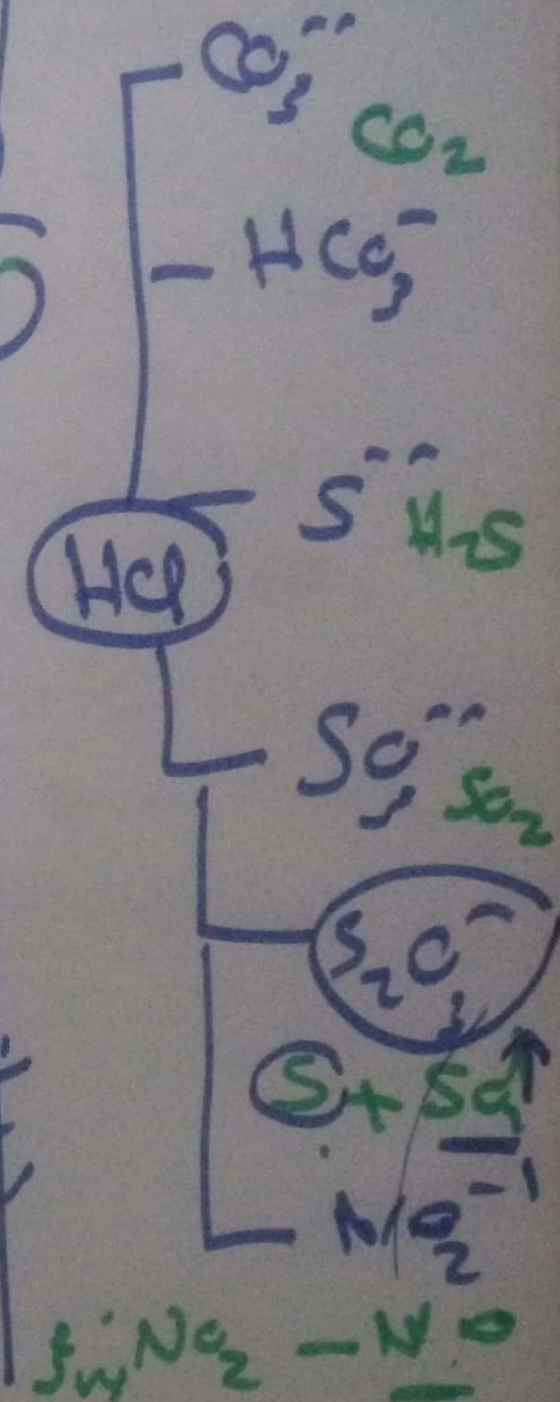 CO₃⁻⁻
CO₂
HCO₃⁻
S⁻⁻ H₂S
HCl
SO₃⁻⁻ SO₂
S₂O₃⁻
S + SO₂↑
NO₂⁻¹
NO₂ — NO